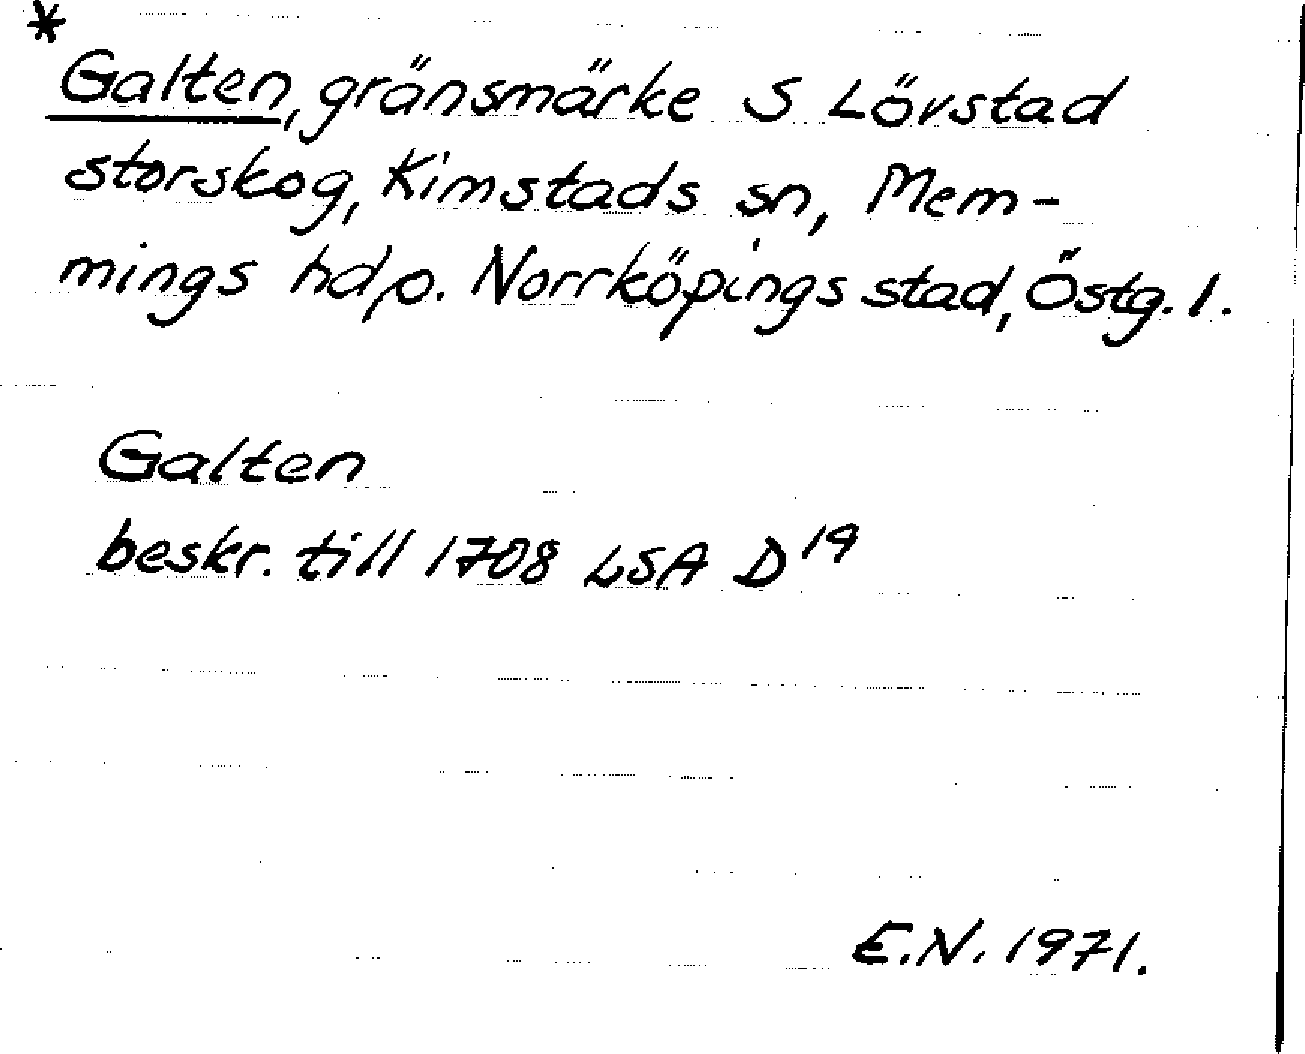 *
Galten, gränsmärke S Lövstad
storskog, Kimstads sn, Mem-
mings hdp. Norrköpings stad, Östg. l.
Galten
beskr. till 1708 LSA D19
E.N. 1971.